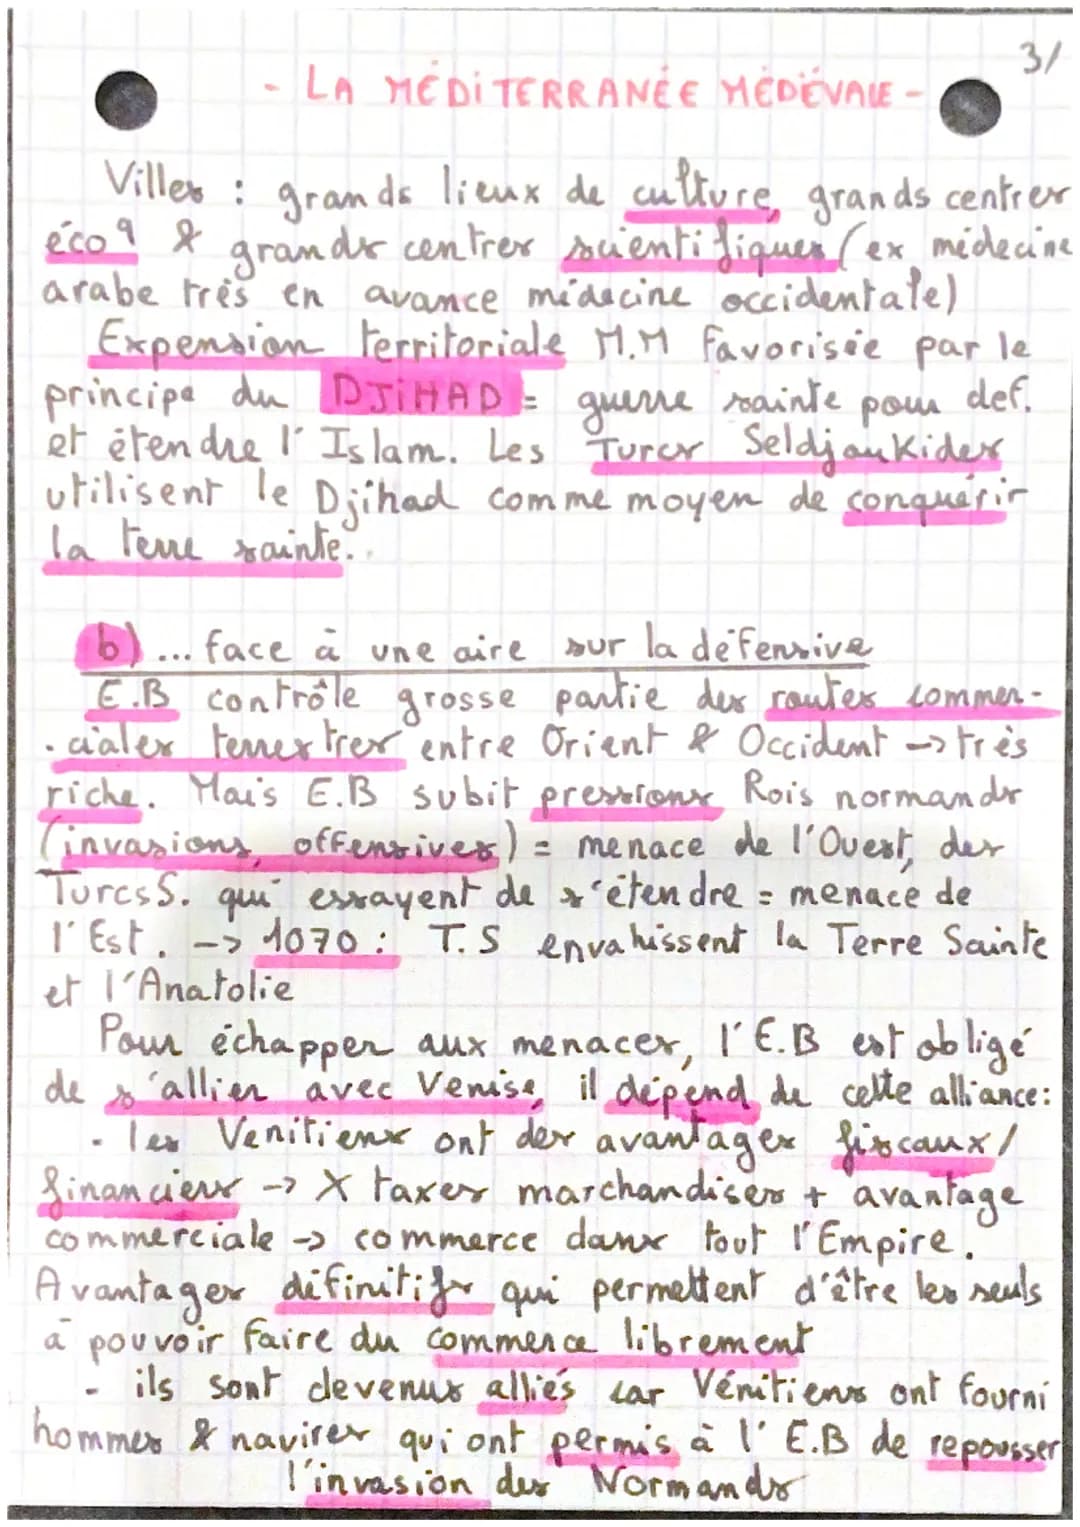 3/
- LA MÉDITERRANÉE MÉDÉVALE -
Villes : grands lieux de culture, grands centres
éco q & grands centres scientifiques (ex médecine
arabe très en avance médecine occidentale)
Expension territoriale M.M favorisée par le
principe du DJIHAD = guerre sainte pour def.
et étendre l'Islam. Les Turcs Seldjoukides
utilisent le Djihad comme moyen de conquérir
la terre sainte.
b) ... face à une aire sur la défensive
E.B contrôle grosse partie des routes commer-
ciales terrestres entre Orient & Occident -> très
riche. Mais E.B subit pressions Rois normands
(invasions, offensives) = menace de l'Ouest, des
Turcs S. qui essayent de s'étendre = menace de
l'Est. -> 1070 : T.S envahissent la Terre Sainte
et l'Anatolie
Pour échapper aux menaces, l'E.B est obligé
de s'allier avec Venise, il dépend de cette alliance:
- les Venitiens ont des avantages fiscaux/
financiers -> X taxes marchandises + avantage
commerciale -> commerce dans tout l'Empire.
Avantages définitifs qui permettent d'être les seuls
à pouvoir faire du commerce librement
- ils sont devenus alliés car Vénitiens ont fourni
hommes & navires qui ont permis à l'E.B de repousser
l'invasion des Normands